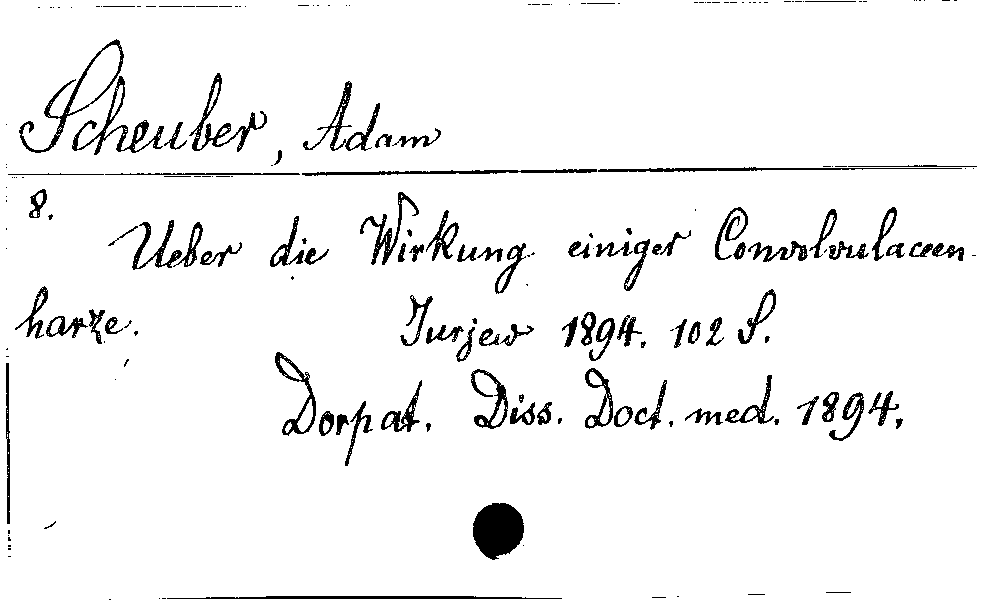 Scheuber, Adam
8.
Ueber die Wirkung einiger Convolvulaceen
harze. Jurjew 1894. 102 S.
Dorpat. Diss. Doct. med. 1894.